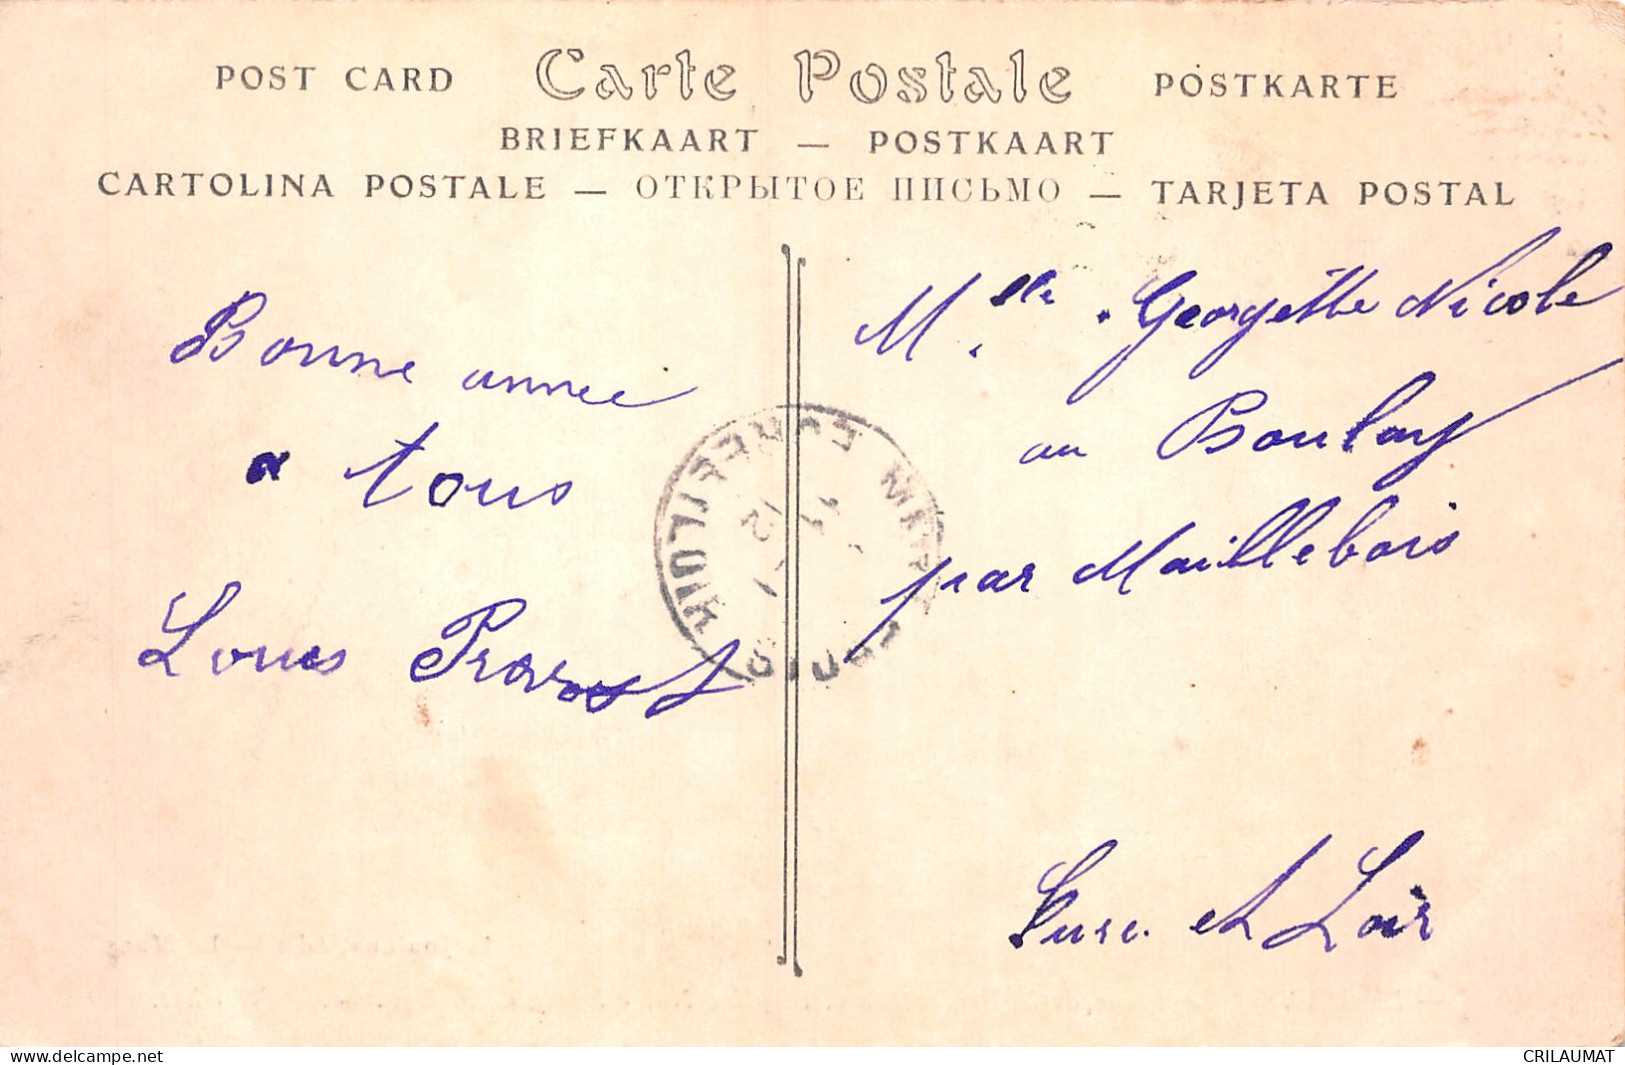 POST CARD Carte Postale POSTKARTE
BRIEFKAART — POSTKAART
CARTOLINA POSTALE — ОТКРЫТОЕ ПИСЬМО — TARJETA POSTAL
Bonne année
a tous
Louis Provost
Mlle. Georgette Nicole
au Boulay
par Maillebois
Eure et Loir
website : www.delcampe.net
CRILAUMAT